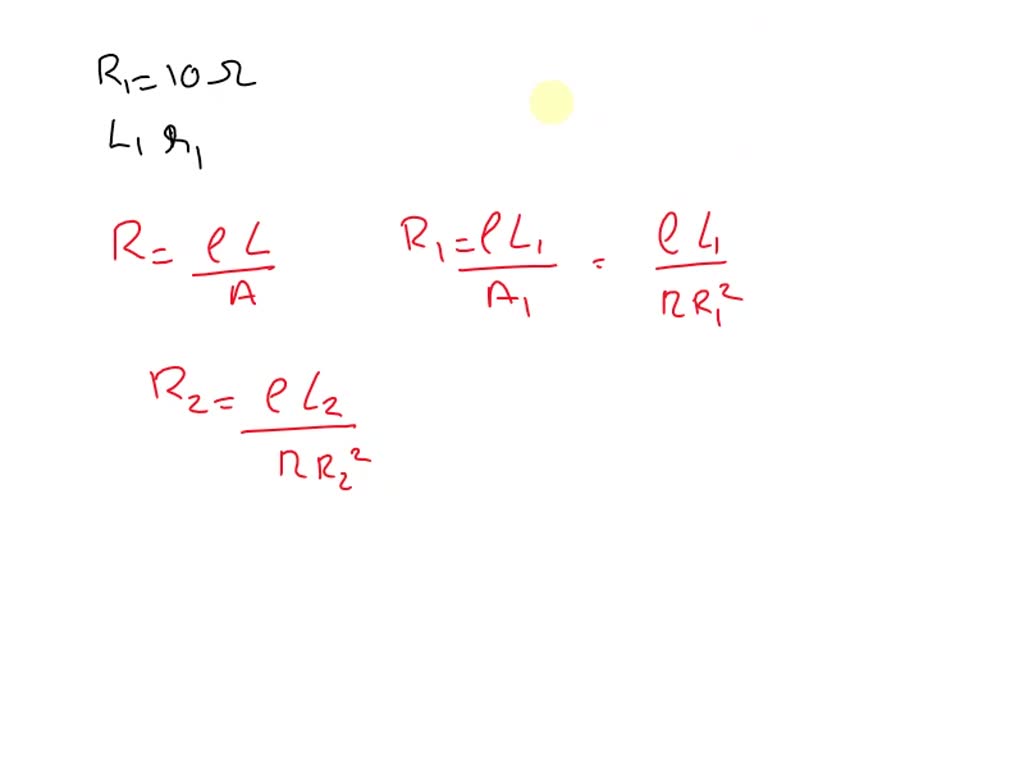 R₁ = 10 Ω
L₁ r₁
R = ρL/A    R₁ = ρL₁/A₁ = ρL₁/πR₁²
R₂ = ρL₂/πR₂²